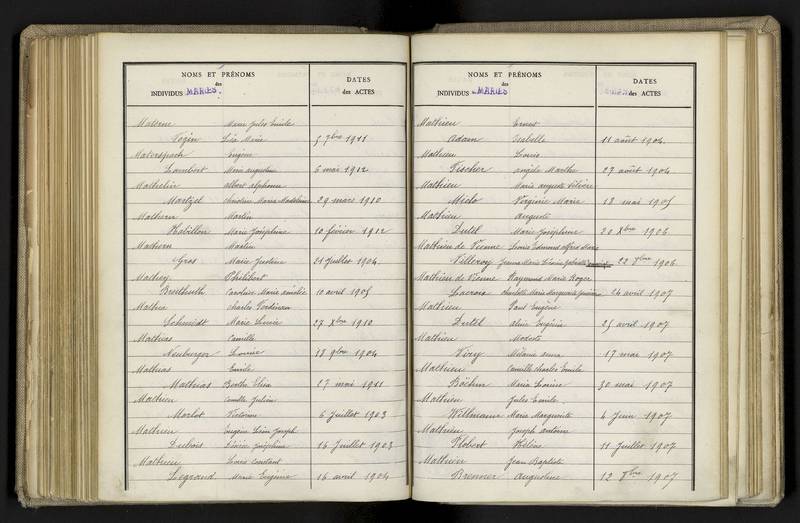 NOMS ET PRÉNOMS
des
INDIVIDUS MARIÉS.
DATES
des ACTES
Marie Jules Emile
Marie 5 7bre 1911
Eugène
Lambert Marie augustine 6 mai 1912
Mathelin albert alphonse
Martzel Marie Madeleine 29 mars 1910
Mathern Martin
Marie Joséphine 10 février 1912
Mathern Martin
Gros Marie Justine 21 Juillet 1904
Mathey Philibert
Caroline Marie 10 avril 1905
Mathia charles Ferdinan
Schmidt Marie Louise 27 Xbre 1910
Mathias Camille
Neuburger Louise 18 9bre 1904
Mathias Emile
Mathias Berthe 17 mai 1911
Mathieu Camille Julien
Morlot Victorine 6 Juillet 1903
Mathieu Eugène Léon Joseph
Dubois Joséphine 16 Juillet 1903
Mathieu Louis constant
Legrand Marie Eugénie 16 avril 1904
NOMS ET PRÉNOMS
des
INDIVIDUS MARIÉS
DATES
des ACTES
Mathieu Ernest
Adam Isabelle 11 août 1904
Mathieu Louis
Fischer angèle Marthe 27 août 1904
Mathieu Marie auguste Silvère
Miclo Virginie Marie 18 mai 1905
Mathieu Auguste
Dutel Marie Joséphine 20 Xbre 1906
Mathieu de Vienne Louis Edmond alfred Marie
Villeroy Jeanne Marie Gabrielle 22 1906
Mathieu de Vienne Raymond Marie Roger
Lacroix Marie Marguerite 24 avril 1907
Mathieu Paul Eugène
Dutel aline Eugénie 25 avril 1907
Mathieu Modeste
Viry Mélanie anna 17 mai 1907
Mathieu Camille Charles Emile
Böehm Maria Louise 30 mai 1907
Mathieu Jules Emile
Willmann Marie Marguerite 4 Juin 1907
Mathieu Joseph antoine
Hélène 11 Juillet 1907
Mathieu Jean Baptiste
Brenner Augustine 12 1907